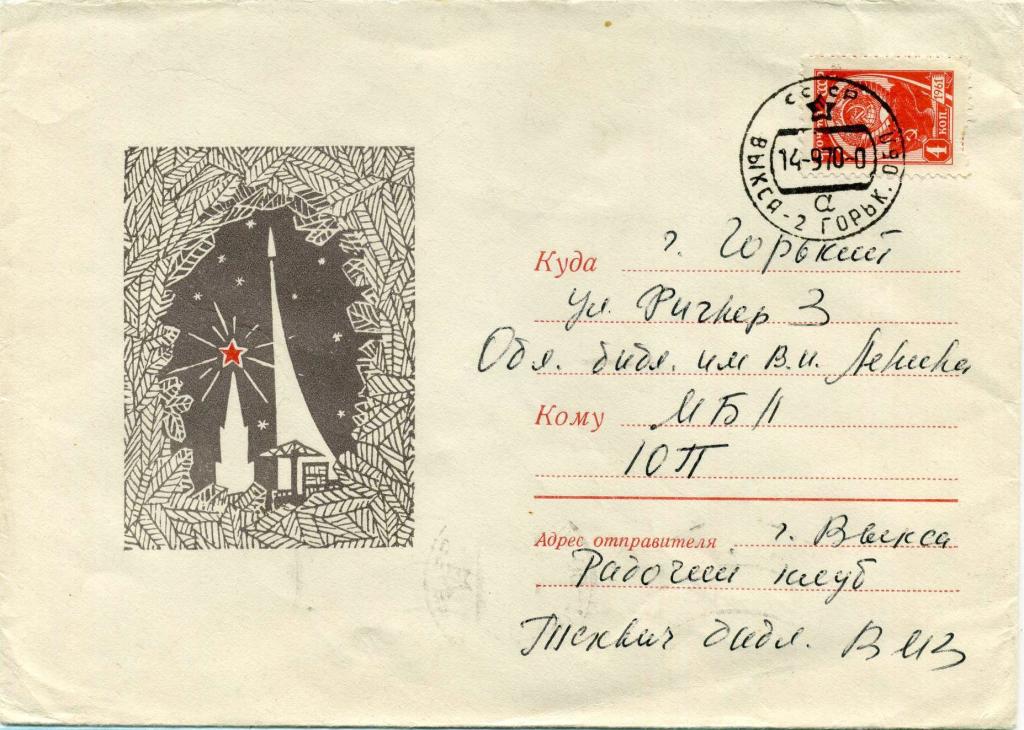 1961
4 коп
СССР
14-970-0
ВЫКСА-2 ГОРЬК. ОБЛ
а
Куда г. Горький
ул. Фигнер 3
Обл. библ. им В.И. Ленина
Кому МБА
ЮП
Адрес отправителя г. Выкса
Рабочий клуб
библ. ВМЗ